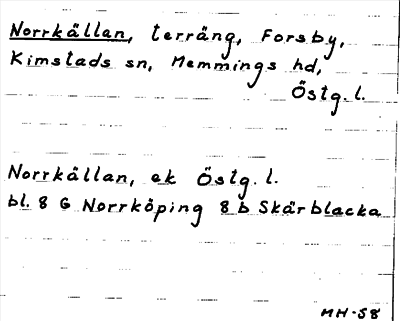 Norrkällan, terräng, Forsby,
Kimstads sn, Memmings hd,
Östg. l.
Norrkällan, ek Östg. l.
bl. 8 G Norrköping 8 b Skärblacka
MH-58